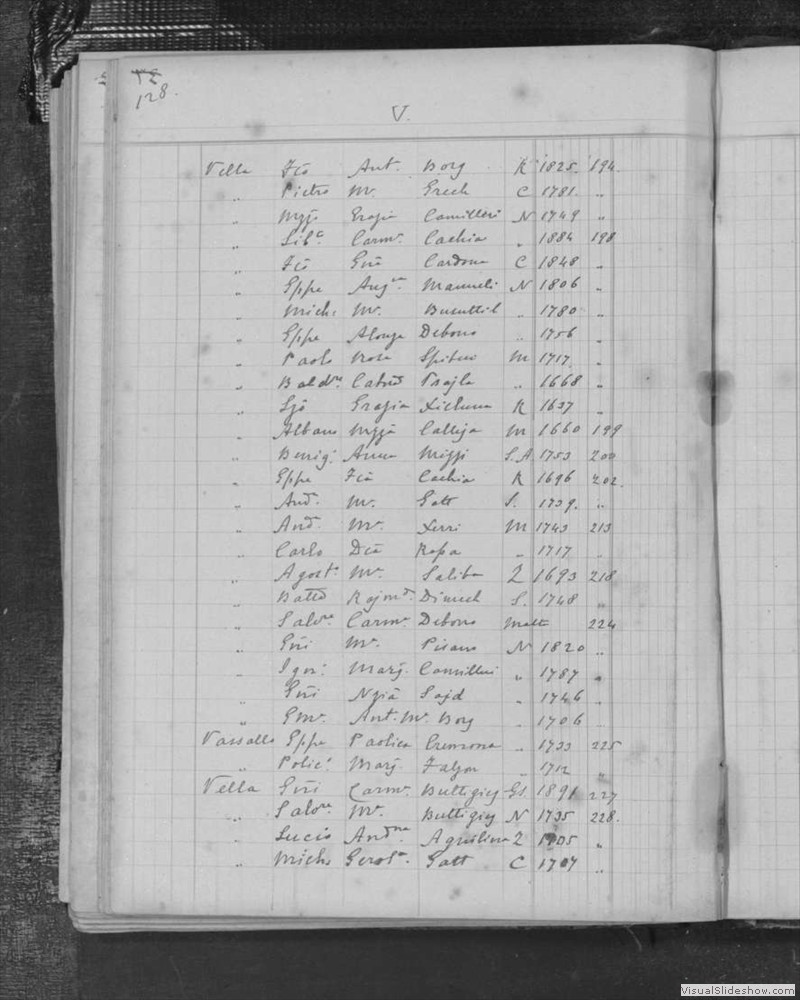 12
128.
V.
Vella Fco Ant. Borg R 1825 194
" Pietro Ma. Grech C 1781 "
" Mzza Grazia Camilleri N 1749 "
" Lib. Carma. Cachia " 1884 198
" Fco Gni Cardona C 1848 "
" Gppe Anga. Mamueli N 1806 "
" Mich. Ma. Busuttil " 1780 "
" Gppe Alonza Debono " 1756 "
" Paolo Rosa Spiteri M 1717 "
" Baldre. Catna " 1668 "
" Grazia Xicluna R 1637 "
" Albano Mzza Calleja M 1660 199
" Benig. Anna Mizzi S.A 1753 200
" Gppe Fca Cachia R 1696 202
" And. Ma. Gatt S. 1739 "
" And. Ma. Xerri M 1743 213
" Carlo Dca Rapa " 1717 "
" Agost. Ma. Saliba Z 1693 218
" Batta Rajmda. Dimech S. 1748 "
" Salvre. Carma. Debono Malt 224
" Gni Ma. Pisano N 1820 "
" Igni. Marj. Camilleri " 1787 "
" Gni Sajd " 1746 "
" Eml. Ant. Ma. Borg " 1706 "
Vassallo Gppe Paolica Cremona " 1733 225
" Polic. Marj. Falzon " 1712 "
Vella Gni Carma. Buttigieg Gl. 1891 227
" Salvre. Ma. Buttigieg N 1735 228
" Lucio Andna. Agustina Z 1705 "
" Mich. Gerola. Gatt C 1707 "
VisualSlideshow.com